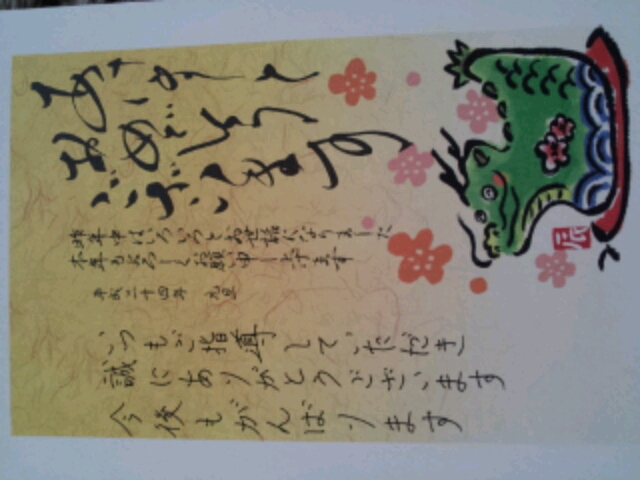 あけまして
おめでとう
ございます
昨年中はいろいろとお世話になりました
本年もよろしくお願い申し上げます
平成二十四年 元旦
いつもご指導して、いただき
誠にありがとうございます
今後もがんばります
辰